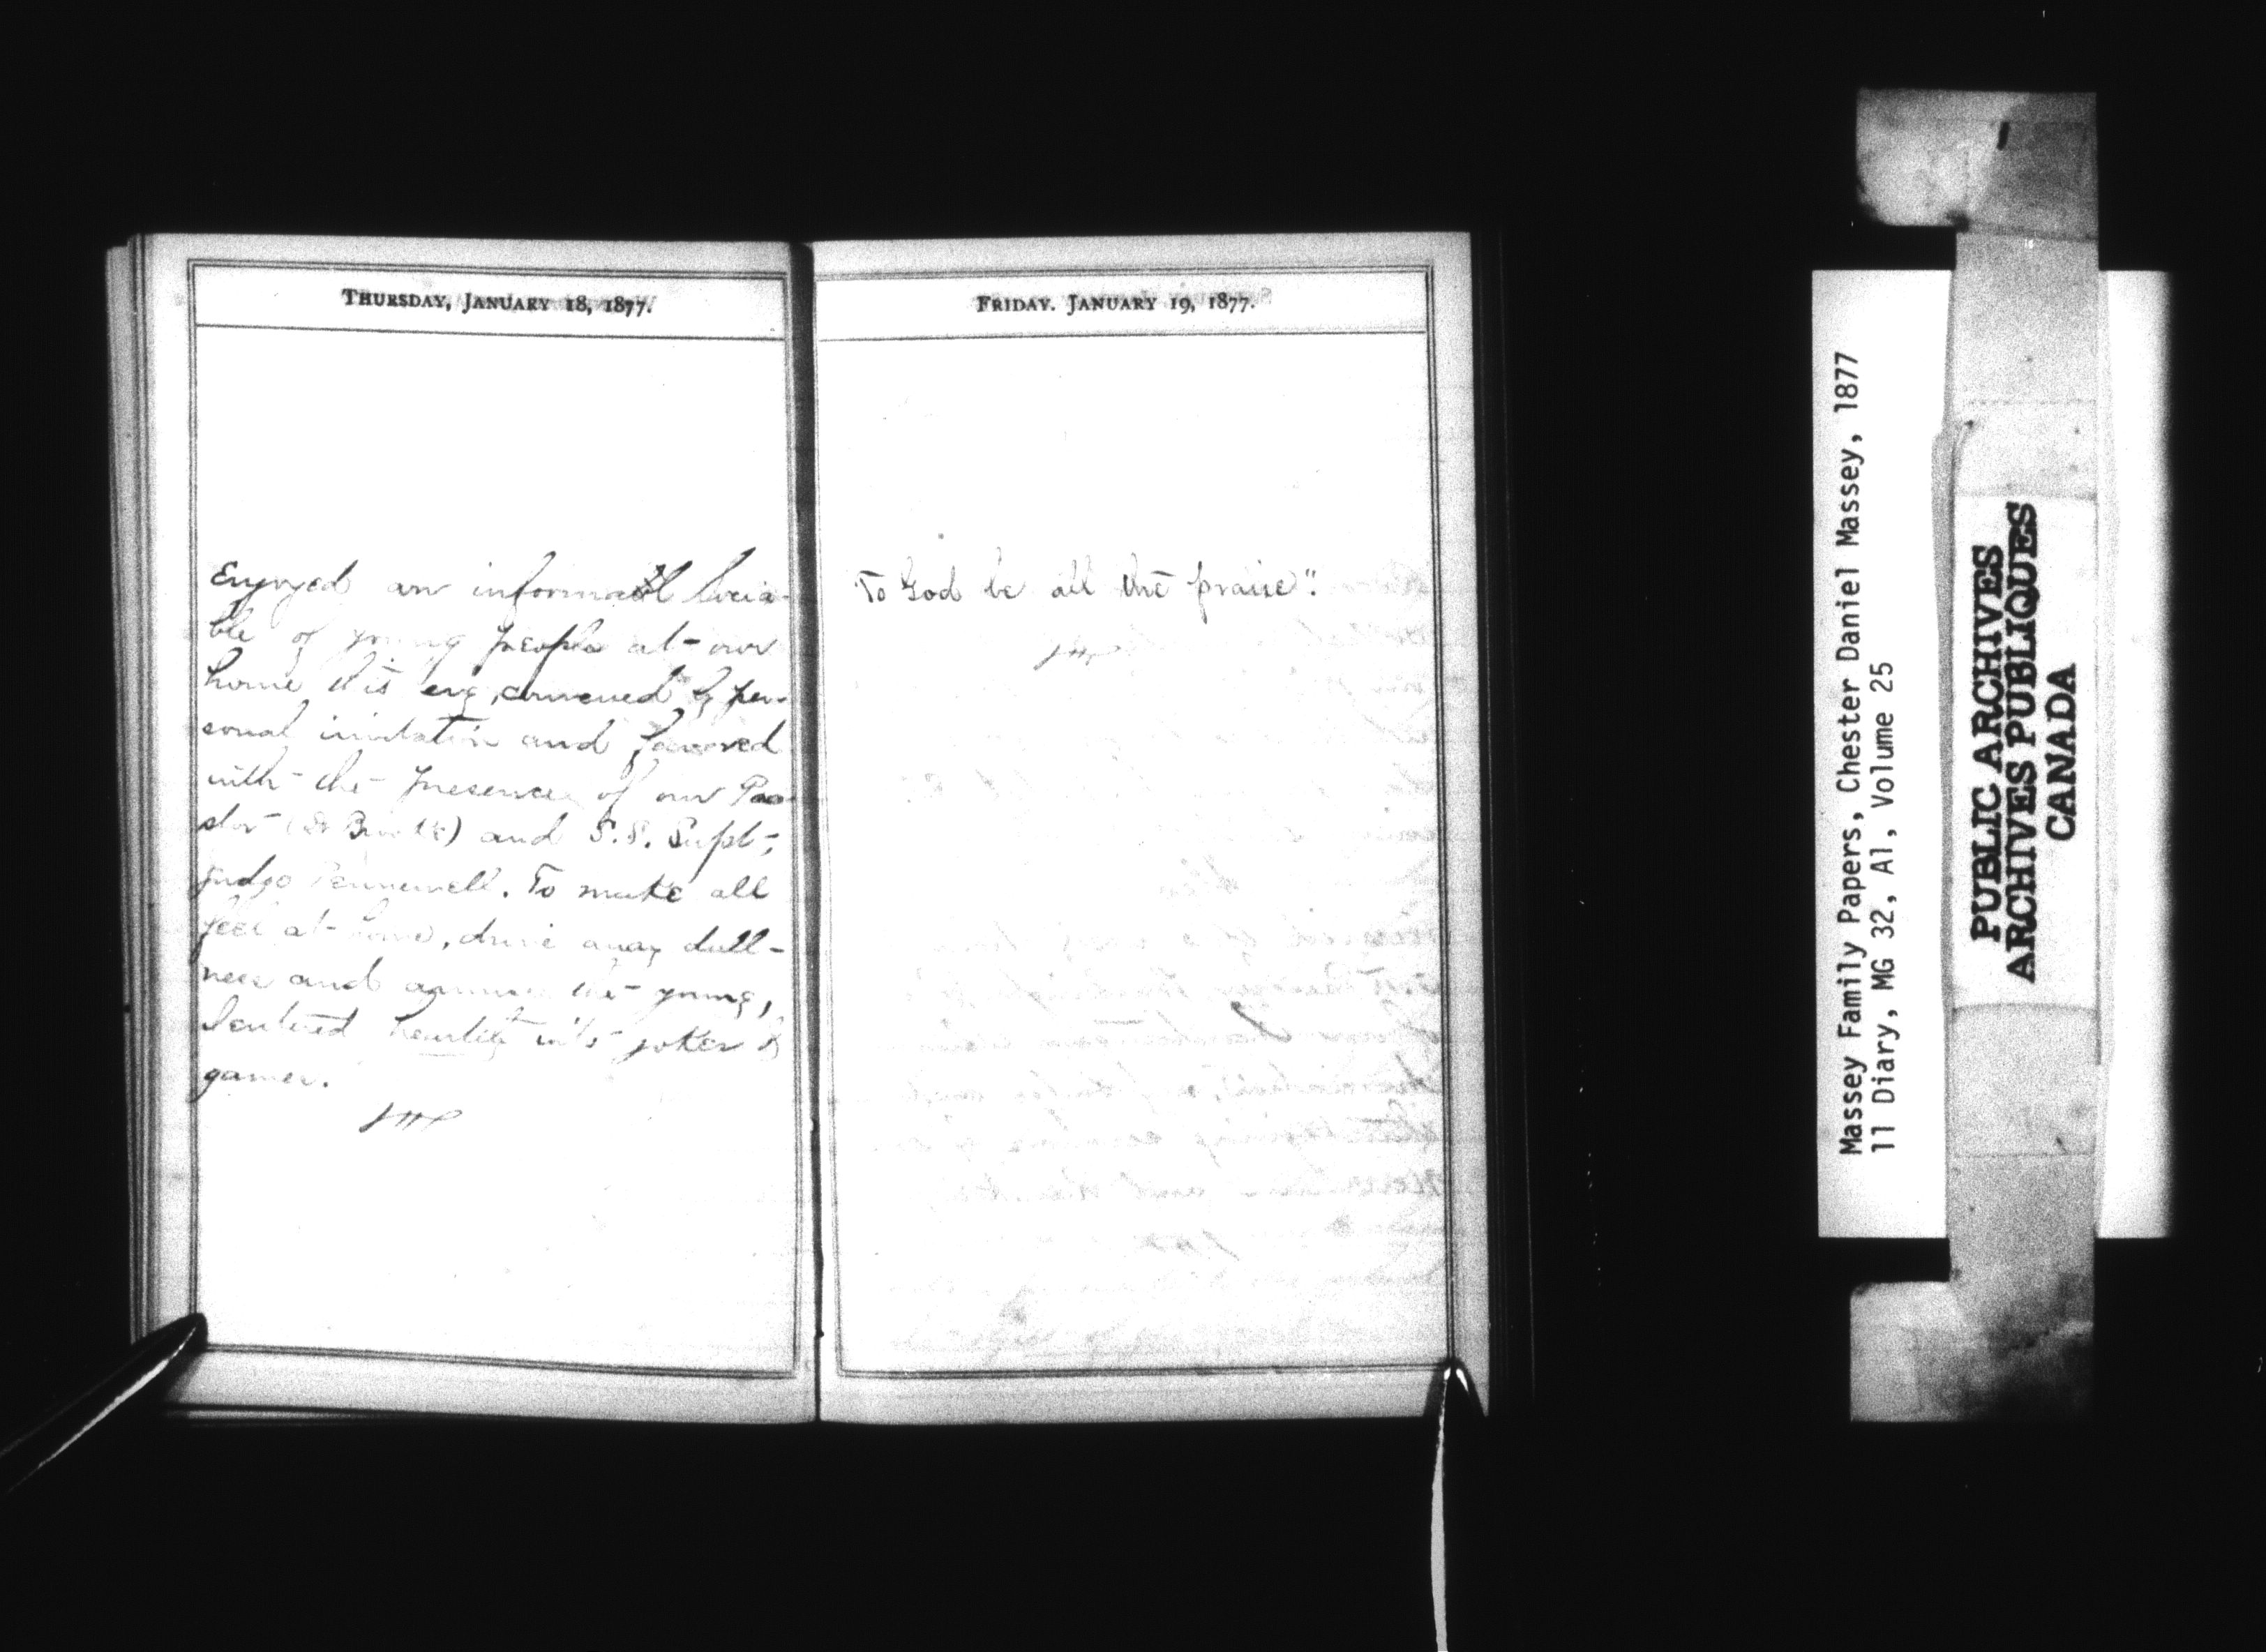 THURSDAY, JANUARY 18, 1877.
Enjoyed an informal socia-
ble of young people at our
home this evg, convened by per-
sonal invitation and favored
with the presence of our Pas-
tor and S.S. Supt,
judge Pennewell. To make all
feel at home, drive away dull-
ness and amuse the young,
I entered heartily into jokes &
games.
FRIDAY. JANUARY 19, 1877.
"To God be all the praise".
Massey Family Papers, Chester Daniel Massey, 1877
11 Diary, MG 32, A1, Volume 25
PUBLIC ARCHIVES
ARCHIVES PUBLIQUES
CANADA